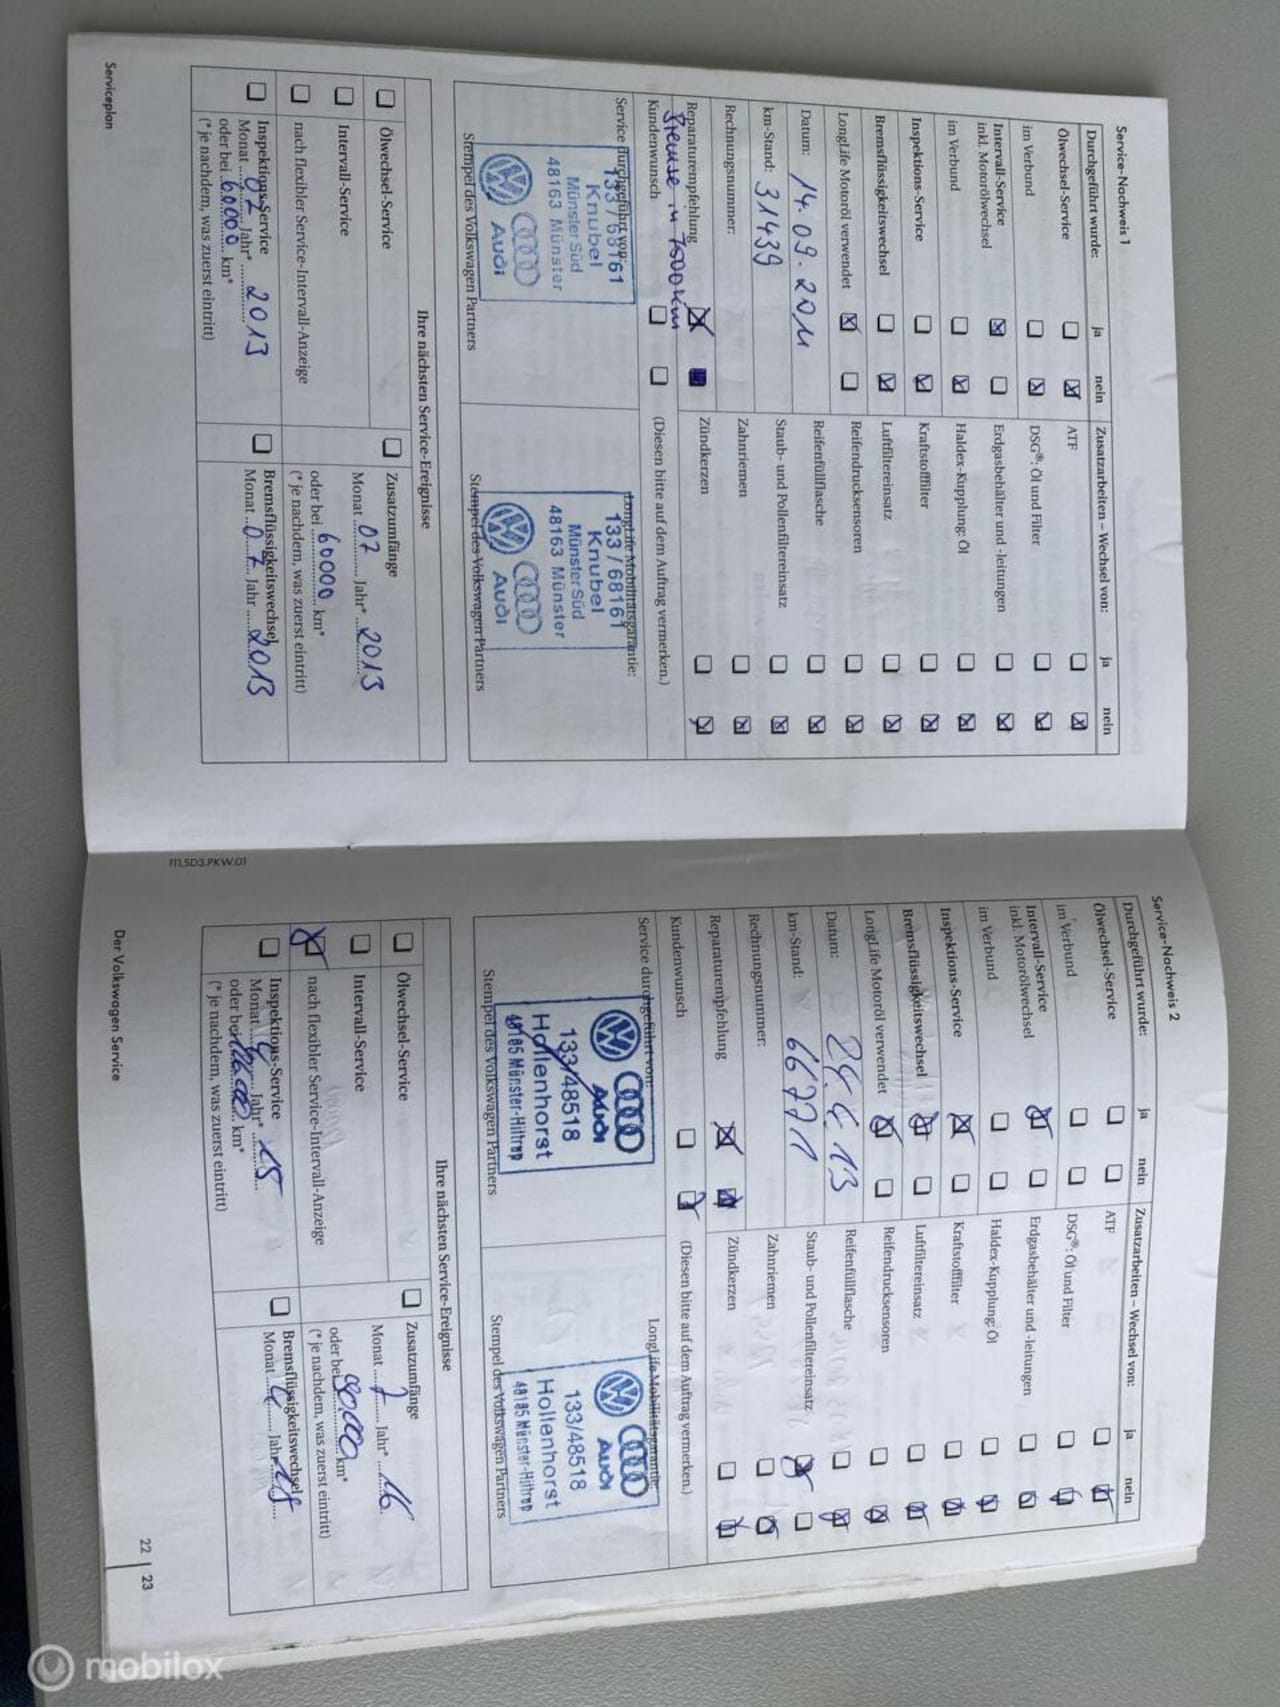 Service-Nachweis 1
Durchgeführt wurde: ja nein
Ölwechsel-Service
im Verbund
Intervall-Service
inkl. Motorölwechsel
im Verbund
Inspektions-Service
Bremsflüssigkeitswechsel
LongLife Motoröl verwendet
Datum: 14.09.2011
km-Stand: 31439
Rechnungsnummer:
Reparaturempfehlung
Bremse in 7500 km
Kundenwunsch
(Diesen bitte auf dem Auftrag vermerken.)
Zusatzarbeiten – Wechsel von: ja nein
ATF
DSG®: Öl und Filter
Erdgasbehälter und -leitungen
Haldex-Kupplung: Öl
Kraftstofffilter
Luftfiltereinsatz
Reifendrucksensoren
Reifenfüllflasche
Staub- und Pollenfiltereinsatz
Zahnriemen
Zündkerzen
Service durchgeführt von:
133 / 68161
Knubel
Münster Süd
48163 Münster
Audi
Stempel des Volkswagen Partners
LongLife Mobilitätsgarantie:
133 / 68161
Knubel
Münster Süd
48163 Münster
Audi
Stempel des Volkswagen Partners
Ihre nächsten Service-Ereignisse
Ölwechsel-Service
Intervall-Service
nach flexibler Service-Intervall-Anzeige
Inspektions-Service
Monat 07 Jahr* 2013
oder bei 60000 km*
(* je nachdem, was zuerst eintritt)
Zusatzumfänge
Monat 07 Jahr* 2013
oder bei 60000 km*
(* je nachdem, was zuerst eintritt)
Bremsflüssigkeitswechsel
Monat 07 Jahr 2013
Serviceplan
111.5D3.PKW.01
Service-Nachweis 2
Durchgeführt wurde: ja nein
Ölwechsel-Service
im Verbund
Intervall-Service
inkl. Motorölwechsel
im Verbund
Inspektions-Service
Bremsflüssigkeitswechsel
LongLife Motoröl verwendet
Datum: 24.6.13
km-Stand: 66771
Rechnungsnummer:
Reparaturempfehlung
Kundenwunsch
(Diesen bitte auf dem Auftrag vermerken.)
Zusatzarbeiten – Wechsel von: ja nein
ATF
DSG®: Öl und Filter
Erdgasbehälter und -leitungen
Haldex-Kupplung: Öl
Kraftstofffilter
Luftfiltereinsatz
Reifendrucksensoren
Reifenfüllflasche
Staub- und Pollenfiltereinsatz
Zahnriemen
Zündkerzen
Service durchgeführt von:
Audi
133/48518
Hollenhorst
48165 Münster-Hiltrup
Stempel des Volkswagen Partners
LongLife Mobilitätsgarantie:
Audi
133/48518
Hollenhorst
48165 Münster-Hiltrup
Stempel des Volkswagen Partners
Ihre nächsten Service-Ereignisse
Ölwechsel-Service
Intervall-Service
nach flexibler Service-Intervall-Anzeige
Inspektions-Service
Monat Jahr* 15
oder bei km*
(* je nachdem, was zuerst eintritt)
Zusatzumfänge
Monat 7 Jahr* 16
oder bei 90000 km*
(* je nachdem, was zuerst eintritt)
Bremsflüssigkeitswechsel
Monat Jahr 15
Der Volkswagen Service
22 | 23
mobilox